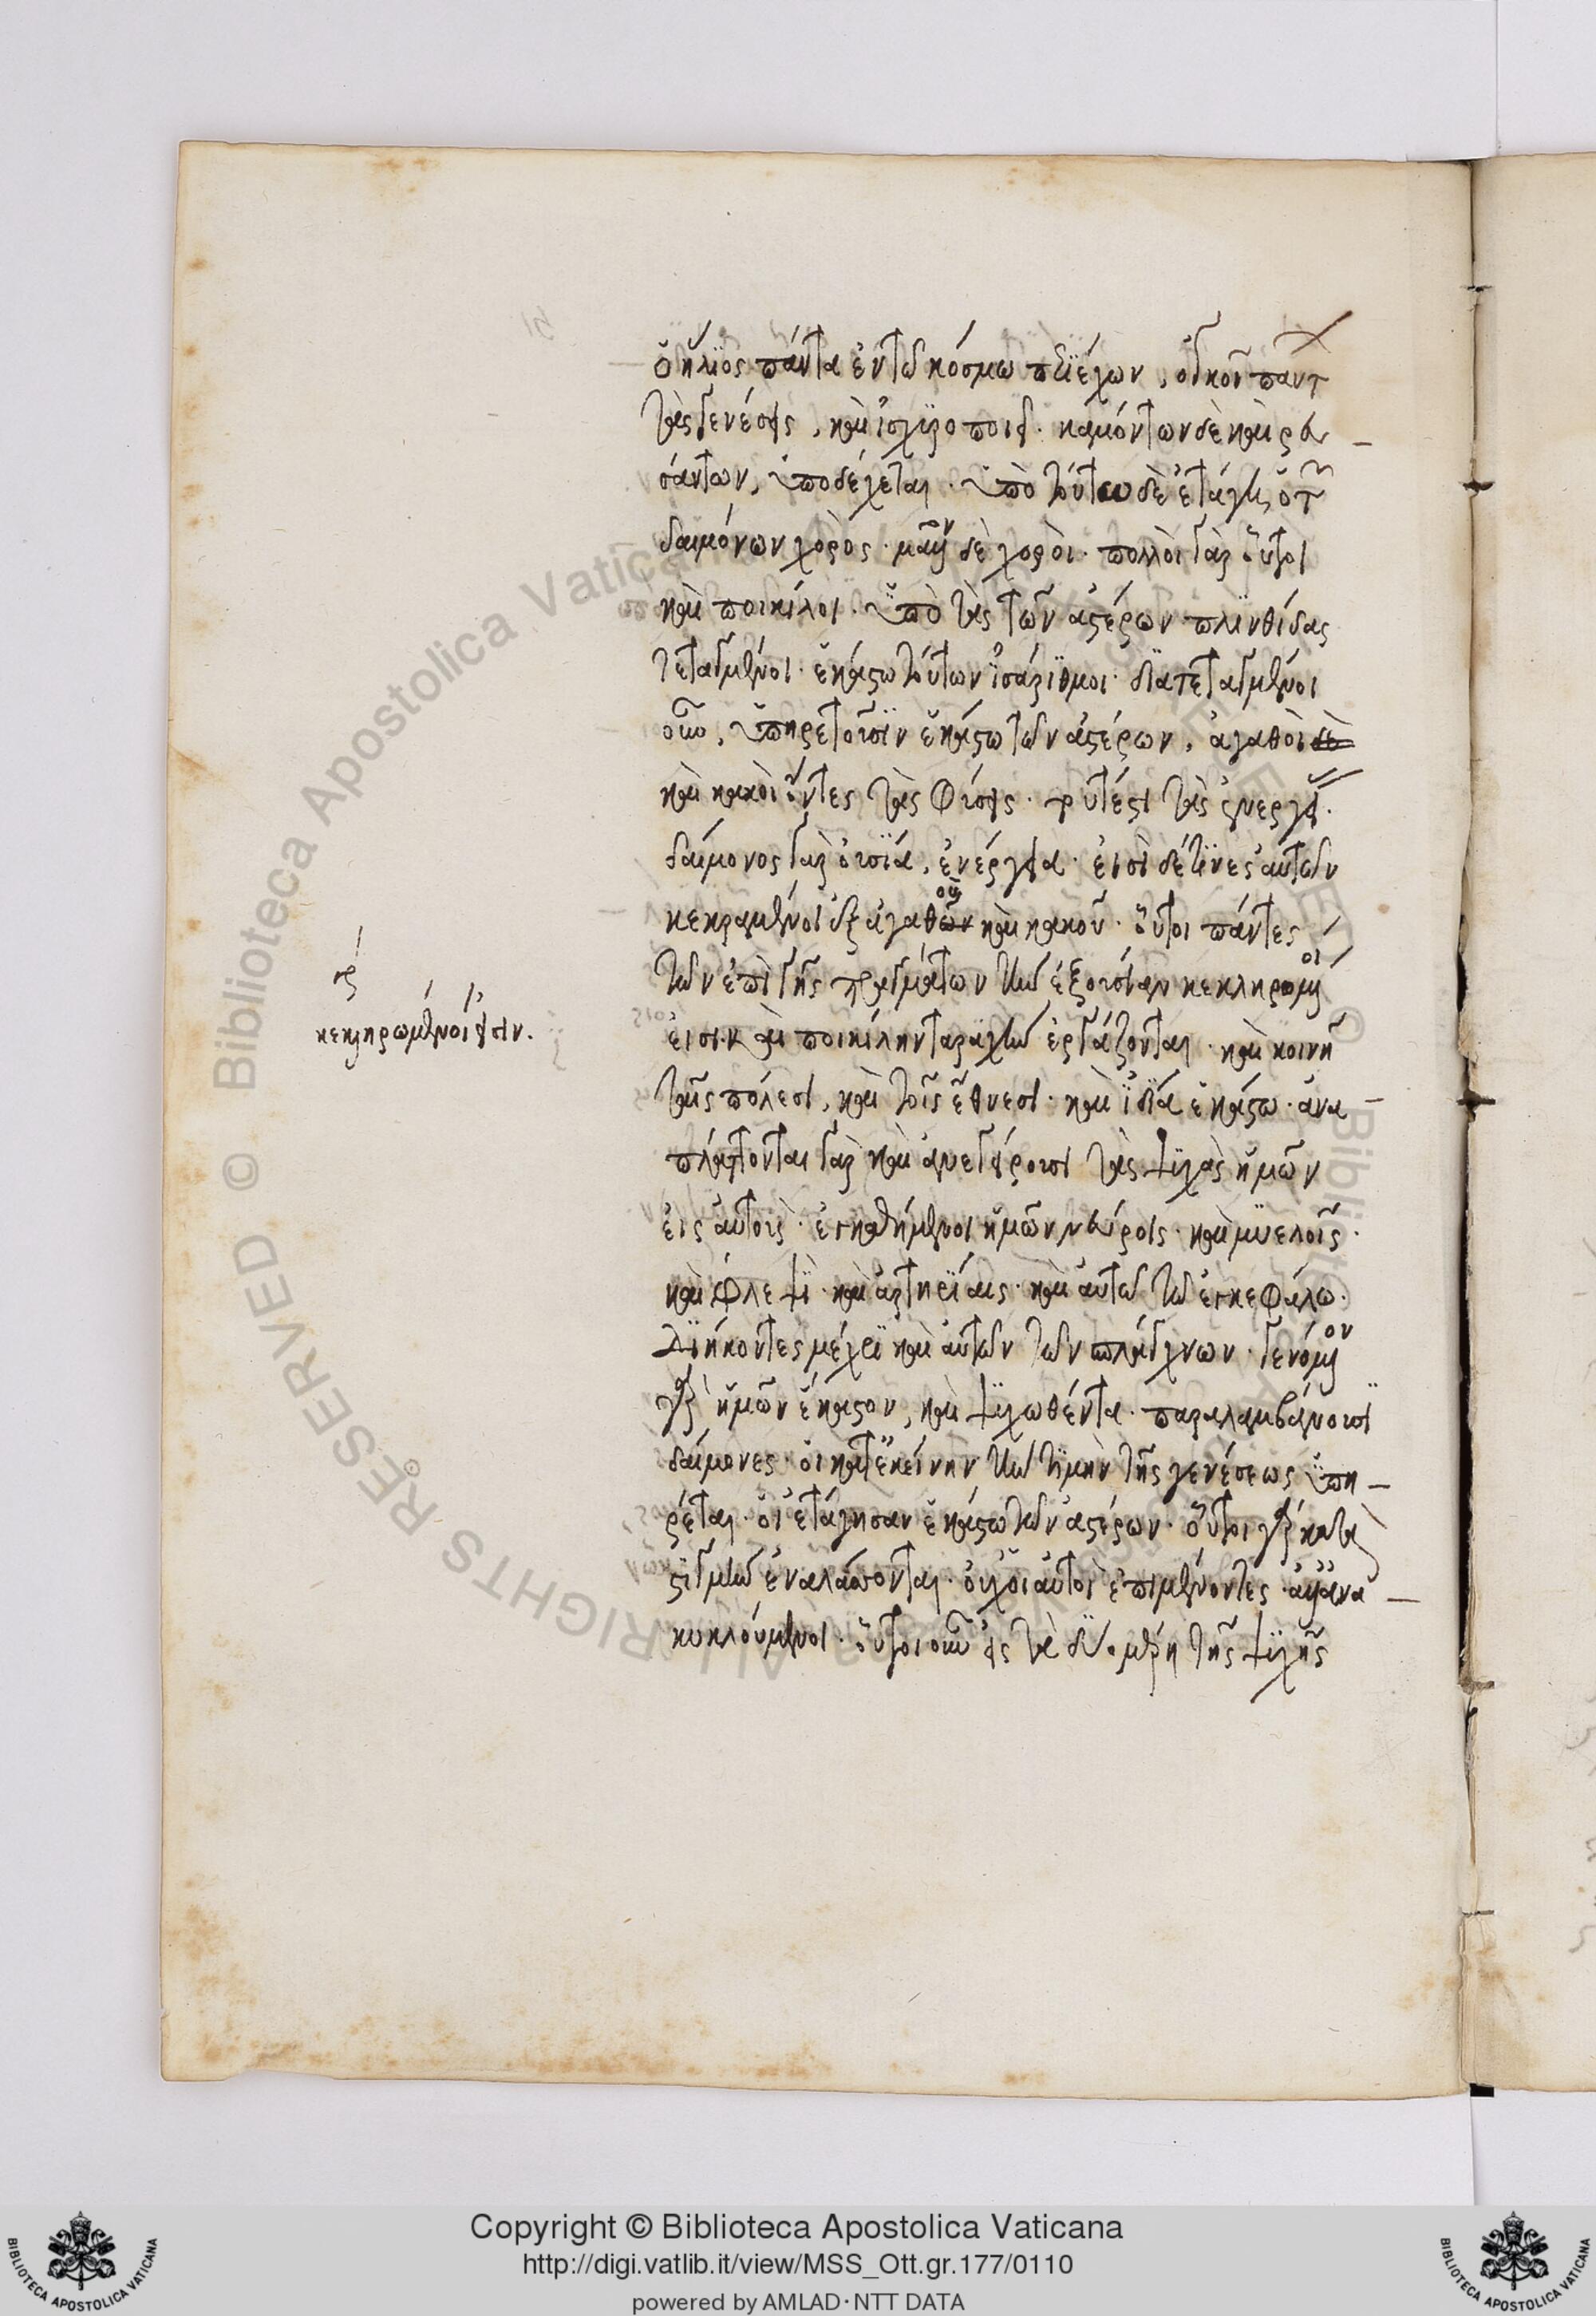 ὁ ἥλιος πάντα ἐν τῶ κόσμω περιέχων, ὀγκοῖ παντ
τὰς γενέσεις, καὶ ἰσχυροποιεῖ. καμόντων δὲ καὶ ῥευ
σάντων, ὑποδέχεται. ὑπὸ τούτω δὲ ἐτάγη, ὁ τῶν
δαιμόνων χορὸς. μᾶλλον δὲ χοροὶ. πολλοὶ γὰρ οὗτοι
καὶ ποικίλοι. ὑπὸ τὰς τῶν ἀστέρων πλινθίδας
τεταγμένοι. ἑκάστω τούτων ἰσάριθμοι. διατεταγμένοι
οὖν, ὑπηρετοῦσιν ἑκάστω τῶν ἀστέρων, ἀγαθοὶ δὲ
καὶ κακοὶ ὄντες τὰς φύσεις. τουτέστι τὰς ἐνεργείας.
δαίμονος γὰρ οὐσία, ἐνέργεια. εἰσὶ δέ τινες αὐτῶν
κεκραμένοι ἐξ ἀγαθῶν οῦ καὶ κακοῦ. οὗτοι πάντες
τῶν ἐπὶ γῆς πραγμάτων τὴν ἐξουσίαν κεκληρομένοι
εἰσι. καὶ ποικίλην ταραχὴν ἐργάζονται. καὶ κοινῆ
ταῖς πόλεσι, καὶ τοῖς ἔθνεσι. καὶ ἰδία ἑκάστω. ἀνα
πλάττονται γὰρ καὶ ἀνεγείρουσι τὰς ψυχὰς ἡμῶν
εἰς αὐτοὺς. ἐγκαθήμενοι ἡμῶν νεύροις. καὶ μυελοῖς.
καὶ φλεψὶ. καὶ ἀρτηρίαις. καὶ αὐτῶ τῶ ἐγκεφάλω.
διήκοντες μέχρι καὶ αὐτῶν τῶν σπλάγχνων. γενόμενον
γὰρ ἡμῶν ἕκαστον, καὶ ψυχωθέντα. παραλαμβάνουσι
δαίμονες. οἱ κατ' ἐκείνην τὴν τιμὴν τῆς γενέσεως ὑπη
ρέται. οἳ ἐτάγησαν ἑκάστω τῶν ἀστέρων. οὗτοι γὰρ κατὰ
στιγμὴν ἐναλάσσονται. οὐχ οἱ αὐτοὶ ἐπιμένοντες. ἀλλ' ἀνα
κυκλούμενοι. οὗτοι οὖν εἰς τὰ δύο μέρη τῆς ψυχῆς
γρ
κεκληρωμένοι εἰσιν.
Copyright © Biblioteca Apostolica Vaticana
http://digi.vatlib.it/view/MSS_Ott.gr.177/0110
powered by AMLAD·NTT DATA